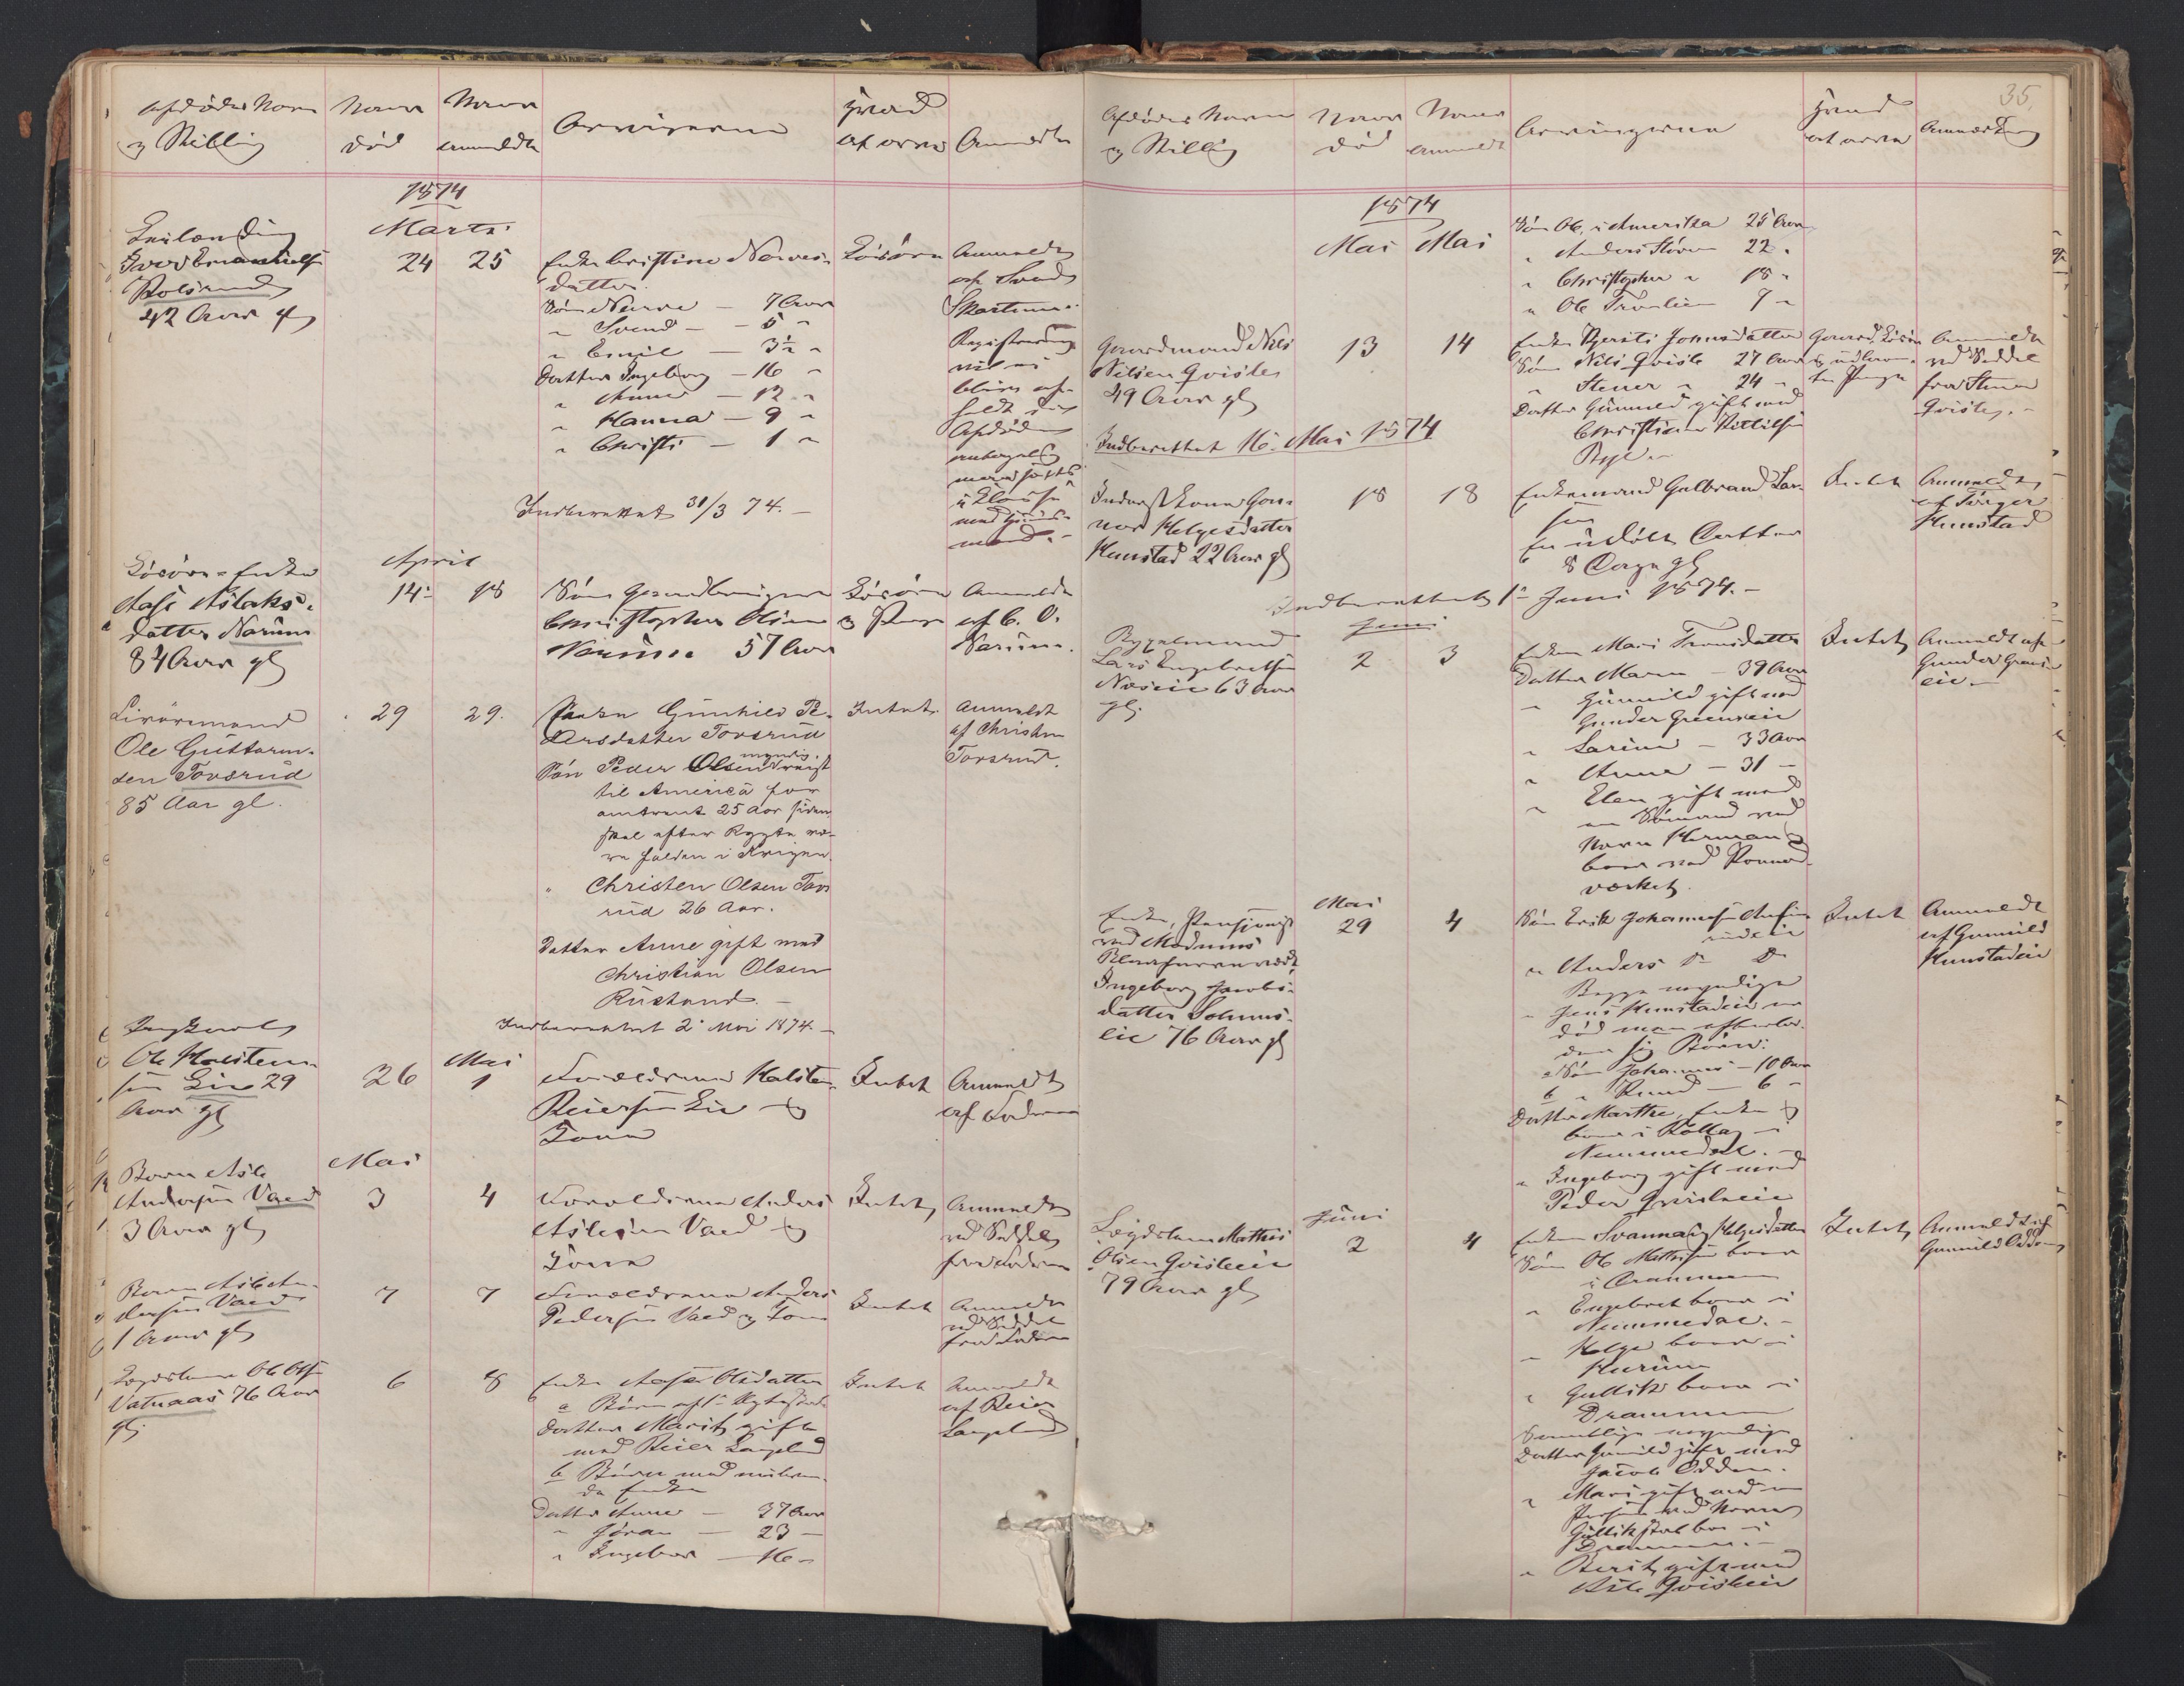 Afdødes Navn
og Stilling
Naar
død
Naar
anmeldt
Arvingerne
Hvad
at arve
Anmerkn
1874
Marts
Iver Emanuels
Rolsrud
42 Aar gl
24 25
Enke Cristine Narves-
datter
Søn Narve — 7 Aar
" Svend — 5 "
" Emil — 3½ "
Datter Ingeborg — 16 "
" Anne — 12 "
" Hanna — 9 "
" Christi — 1 "
Løsøre
Anmeldt
af Svend
Skartum.
Registrering
vil ei
blive af-
holdt da
Afdøde
Indberettet 31/3 74. —
April
Løsøre
Aase Aslaks-
datter Narum
84 Aar gl
14 18
Søn
Christopher Olsen
Narum 57 Aar
Løsøre
og Penge
Anmeldt
af C. O.
Narum.
Livøremand
Ole Guttorm-
sen Tovsrud
85 Aar gl.
29 29.
Gunhild Pe-
dersdatter Tovsrud
Søn Peder Olsen myndig, reist
til America for
omtrent 25 Aar siden,
skal efter Rygte væ-
re falden i Krigen.
" Christen Olsen Tovs
rud 26 Aar.
Datter Anne gift med
Christian Olsen
Rustand. —
Intet.
Anmeldt
af Christen
Tovsrud.
Indberettet 2 Mai 1874 —
Ungkarl
Ole Halsten-
sen Lie 29
Aar gl
26
Mai
1
Forældrene Halsten
Reiersen Lie og
Kone
Intet
Anmeldt
af Faderen
Mai
Barn Asle
Andersen Vaed
3 Aar gl
3 4
Forældrene Anders
Aslesen Vaed og
Kone
Intet
Anmeldt
ved Seddel
fra Faderen
Barn Asle An-
dersen Vaed
1 Aar gl
7 7
Forældrene Anders
Pedersen Vaed og Kone
Intet
Anmeldt
ved Seddel
fra Faderen
Lægdslem Ole Ols
Vatnaas 76 Aar
gl.
6 8
Enke Aase Olsdatter
a Børn af 1ste Ægteskab
Datter Marit gift
med Reier Langeland
b Børn med nuleven-
de Enke
Datter Anne — 37 Aar
" Jøran — 23 —
" Ingebor — 16 —
Intet
Anmeldt
af Reier
Langeland
35.
Afdødes Navn
og Stilling
Naar
død
Naar
anmeldt
Arvingerne
Hvad
at arve
Anmærkning
1874
Mai Mai
Søn Ole, i Amerika 25 Aar
" Anders Støren 22 "
" Christopher " 18 "
" Ole Tronlien 7 "
Gaardmand Nils
Nilsen Qvisle
49 Aar gl
13 14
Enke Kjersti Jonsdatter
Søn Nils Qvisle 27 Aar
" Stener " 24 "
Datter Gunild gift med
Christian Kittilsen
Bye. —
Gaard, Løsøre
Anmeldt
ved Seddel
fra Stener
Qvisle. —
Indberettet 16. Mai 1874
Inderst Kone Gun-
nor Helgesdatter
Kunstad 22 Aar gl
18 18
Enkemand Gulbrand Lar-
sen
En udøbt Datter
8 Dage gl
Intet
Anmeldt
af Torger
Kunstad
Indberettet 1ste Juni 1874. —
Juni
Bygselmand
Lars Engebretsen
Næseie 63 Aar
gl.
2 3
Enke Mari Tronsdatter
Datter Maren — 39 Aar
" Gunnild gift med
Gunder Greenseie
" Larine — 33 Aar
" Anne — 31 —
" Elen gift med
en Sømand ved
Navn Herman og
bor ved
værket.
Intet
Anmeldt af
Gunder Greens
eie —
Enke, Pensionist
ved Modums
Blaafarveværk
Ingeborg Jacobs-
datter Solums-
eie 76 Aar gl
Mai
29 4
Søn Erik Johannesen
rudeie
" Anders do do
Begge myndige
" Jens Kunstadeie er
død men efterla-
der sig Børn:
a Søn Johannes — 10 Aar
b " Knud — 6 "
Datter Marthe, Enke og
bor i Rollag i
Nummedal. —
" Ingeborg gift med
Peder Qvisleeie
Intet
Anmeldt
af Gunnild
Kunstadeie
Lægdslem Mathis
Olsen Qvisleeie
79 Aar gl
Juni
2 4
Enke Svanaug Helgesdatter
Søn Ole Mathisen bor
i Drammen
" Engebret bor i
Nummedal. —
" Helge bor i
Hurum
" Gullik bor i
Drammen
Samtlige myndige
Datter Gunild gift med
Jacob Odden.
" Mari gift med en
Person ved Navn
Gullik skal bo i
Drammen. —
" Berit gift med
Asle Qvisleeie
Intet
Anmeldt af
Gunnild Odden